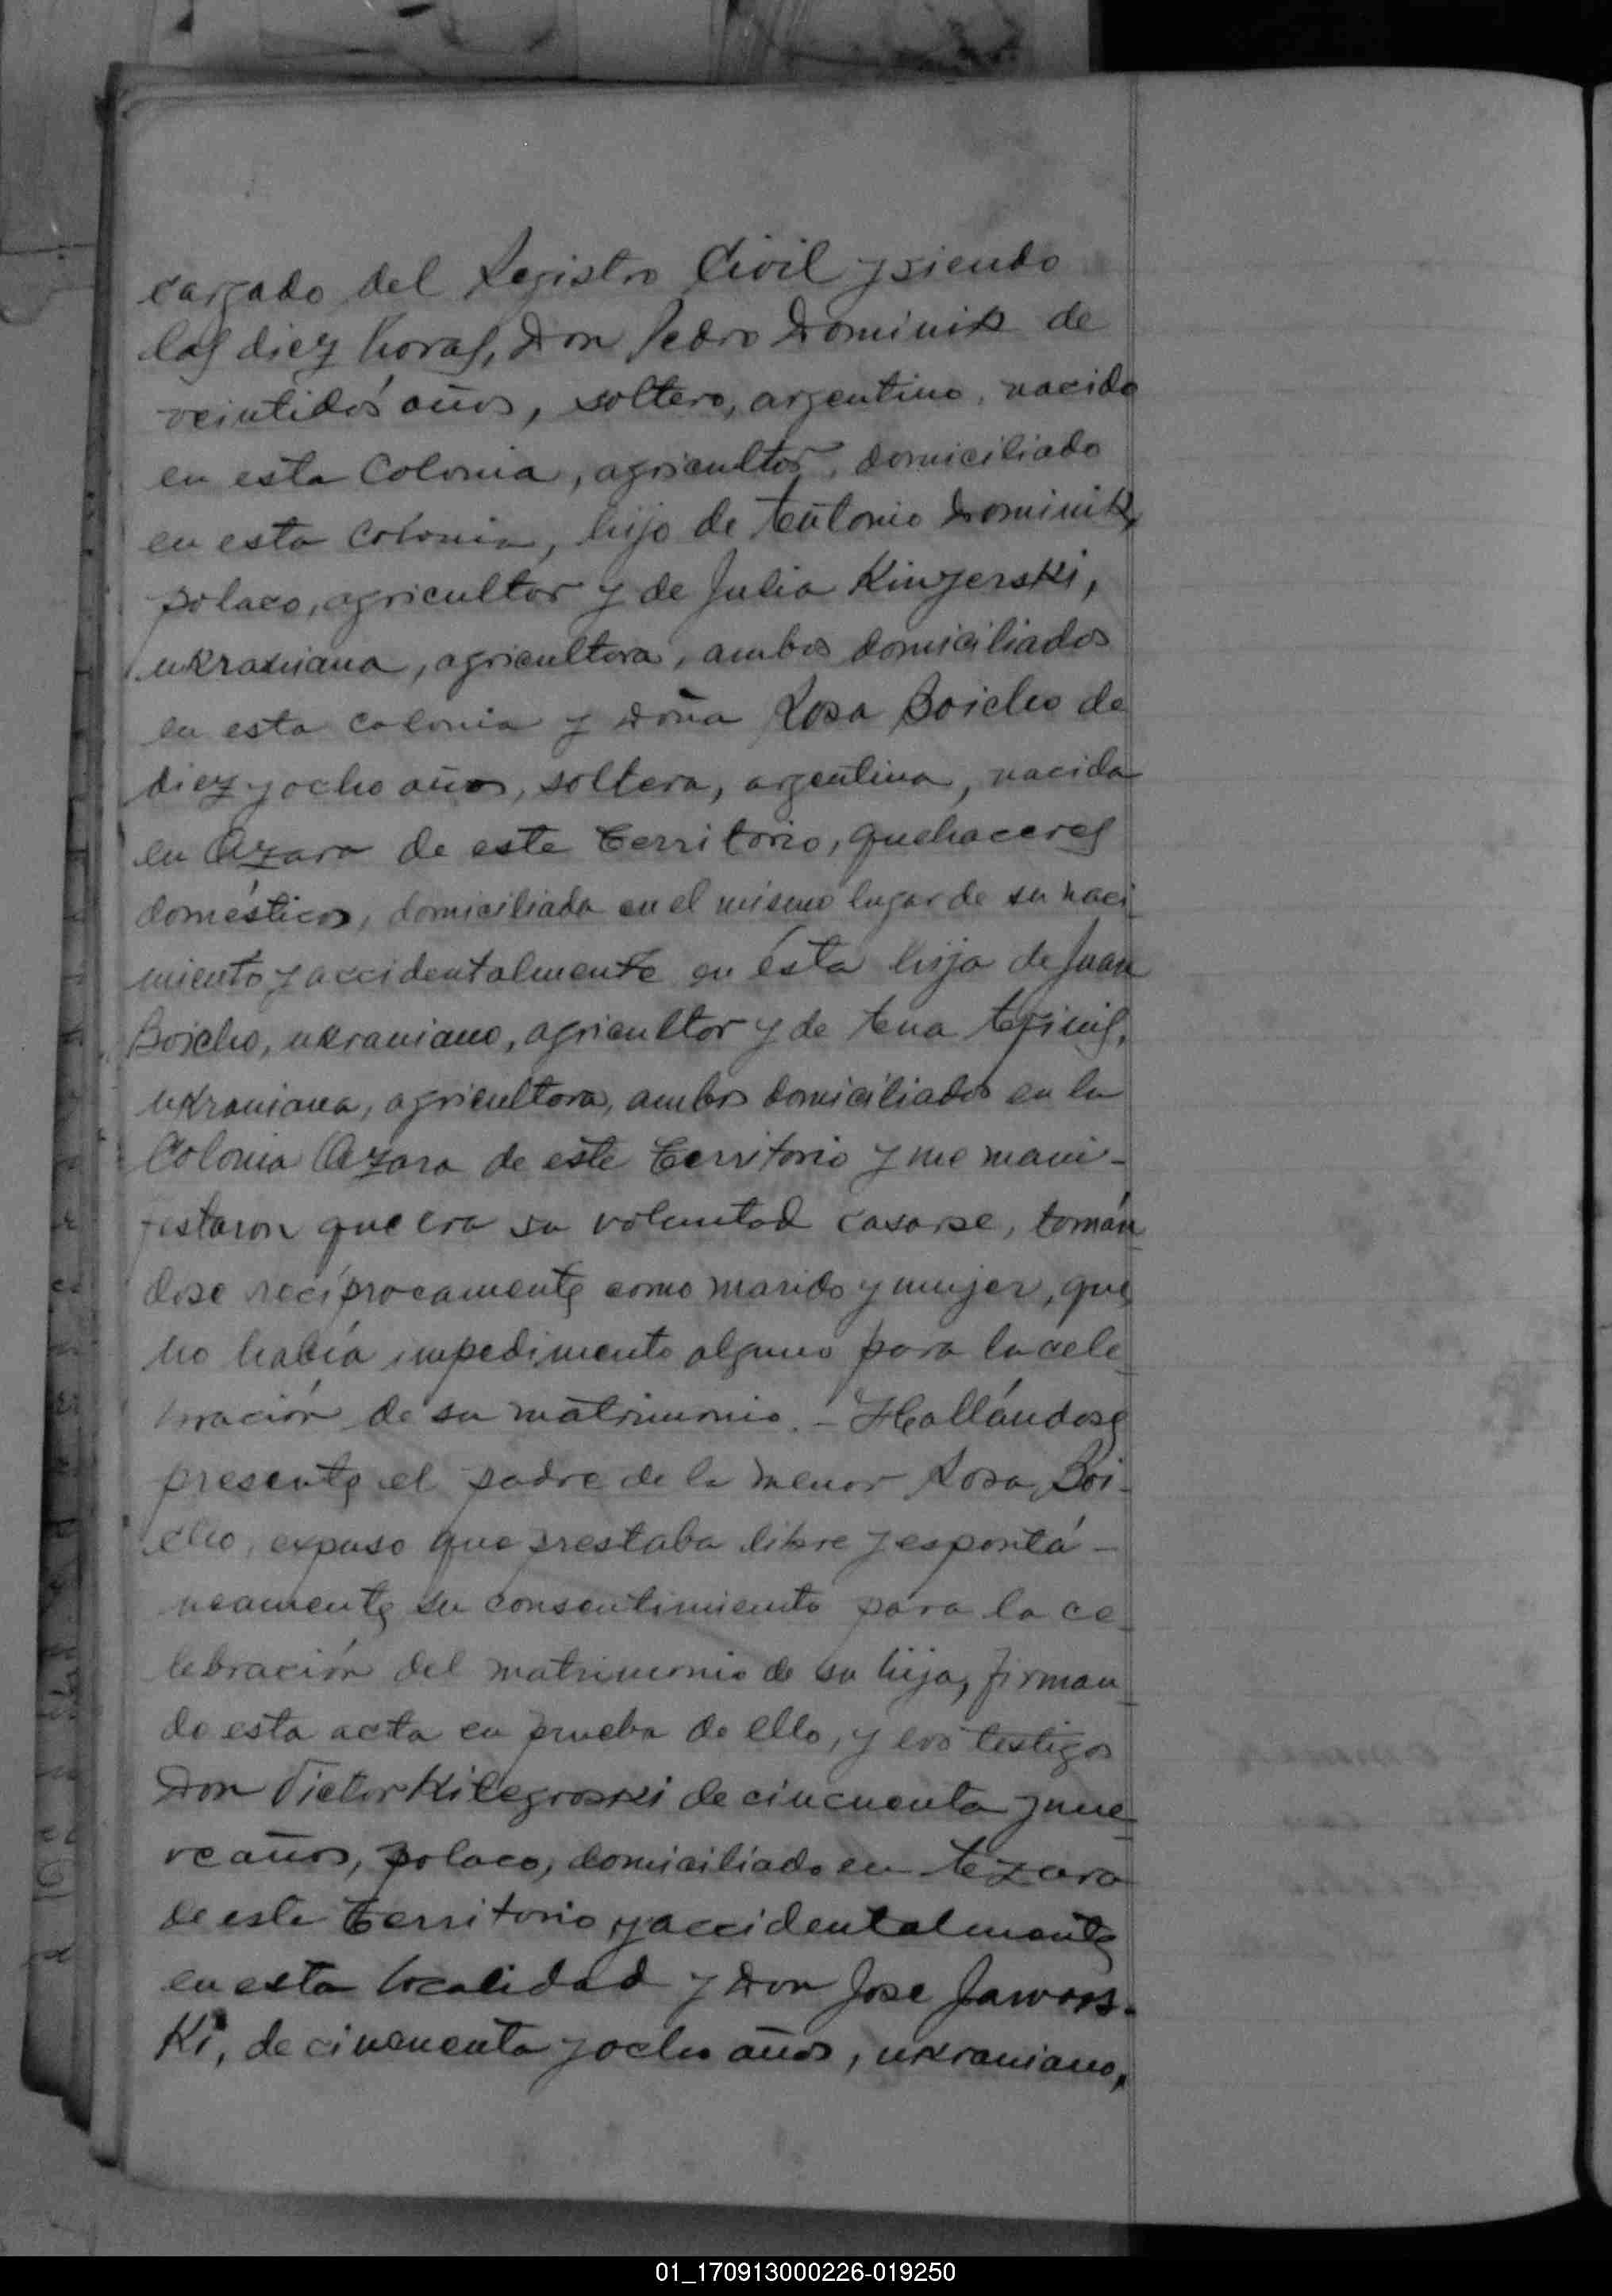 cargado del Registro Civil y siendo
las diez horas, Don Pedro Dominik de
veintidós años, soltero, argentino, nacido
en esta Colonia, agricultor, domiciliado
en esta colonia, hijo de Antonio Dominik,
polaco, agricultor y de Julia Kinyerski,
ukraniana, agricultora, ambos domiciliados
en esta colonia y Doña Rosa Boicho de
diez y ocho años, soltera, argentina, nacida
en Azara de este Territorio, quehaceres
domésticos, domiciliada en el mismo lugar de su naci
miento y accidentalmente en ésta hija de Juan
Boicho, ukraniano, agricultor y de Ana
ukraniana, agricultora, ambos domiciliados en la
Colonia Azara de este Territorio y me mani-
festaron que era su voluntad casarse, tomán
dose recíprocamente como marido y mujer, que
no había impedimento alguno para la cele
bración de su matrimonio. - Hallándose
presente el padre de la menor Rosa Boi-
cho, expuso que prestaba libre y espontá-
neamente su consentimiento para la ce
lebración del matrimonio de su hija, firman
do esta acta en prueba de ello, y los testigos
Don Victor Kilegroski de cincuenta y nue
ve años, polaco, domiciliado en Azara
de este Territorio y accidentalmente
en esta localidad y Don Jose Jawors-
Ki, de cincuenta y ocho años, ukraniano,
01_170913000226-019250